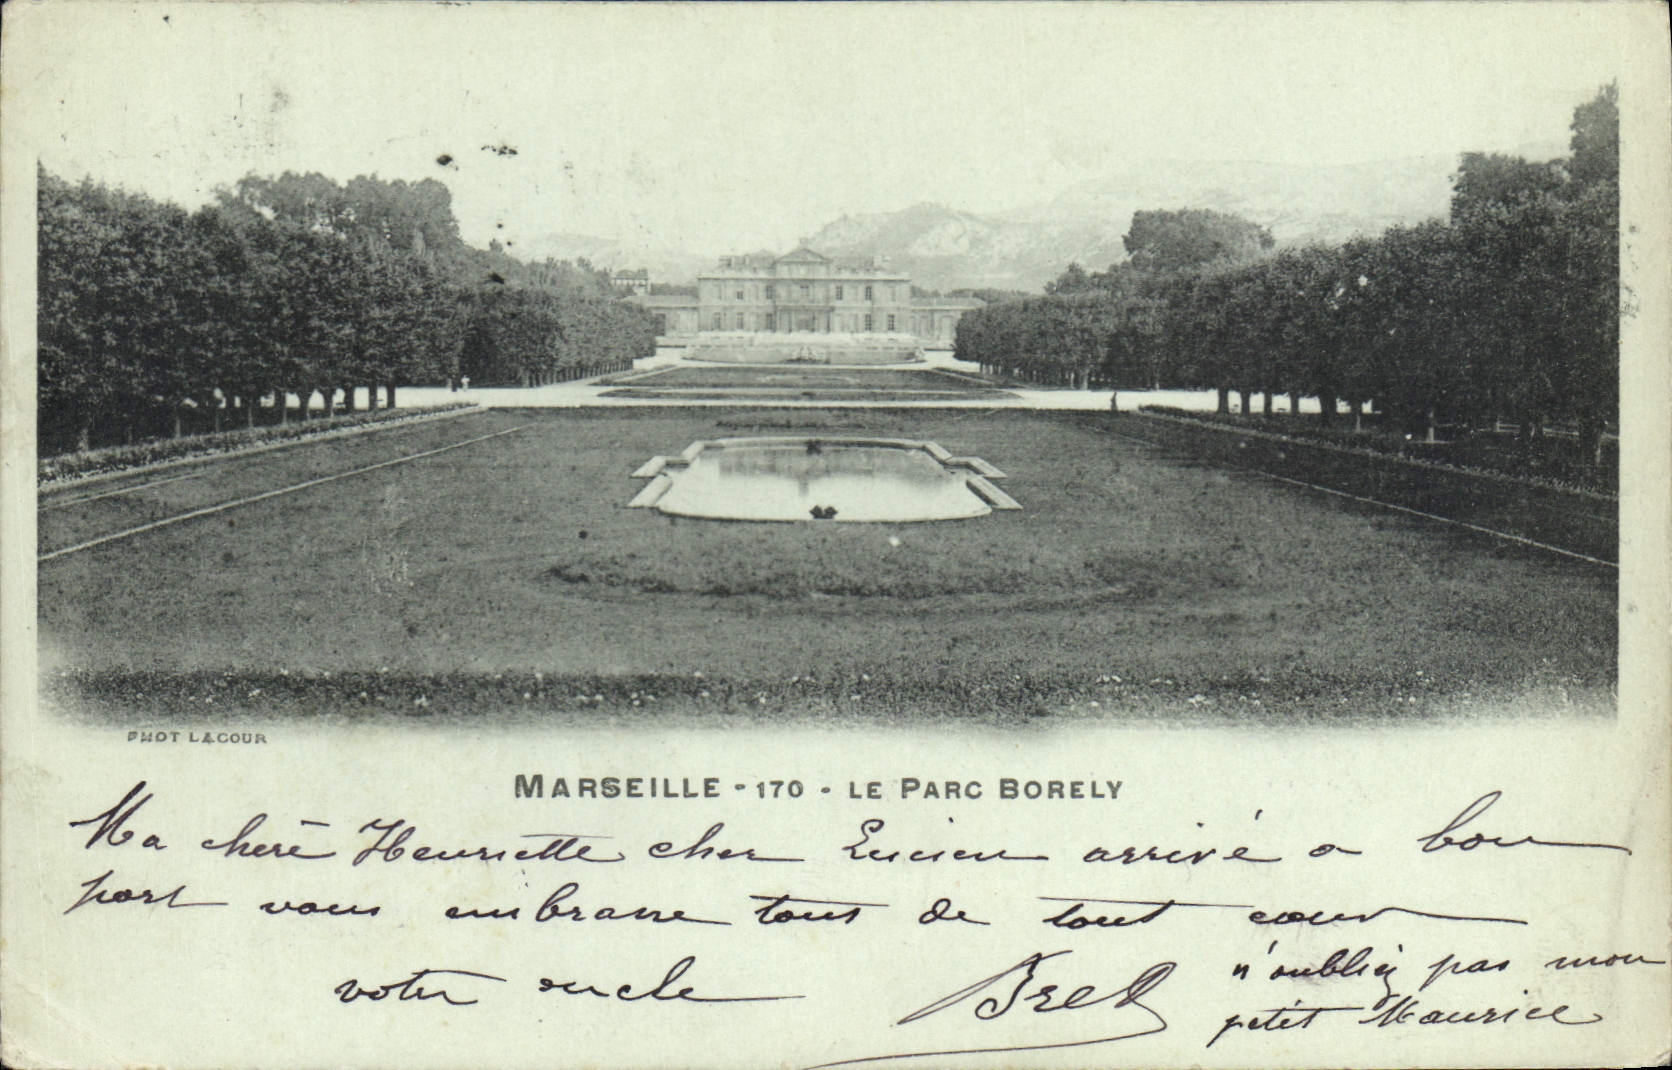 PHOT LACOUR
MARSEILLE - 170 - LE PARC BORELY
Ma chère Henriette cher Lucien arrivé a bon
port vous embrasse tous de tout cœur
votre oncle
n'oubliez pas mon
petit Maurice